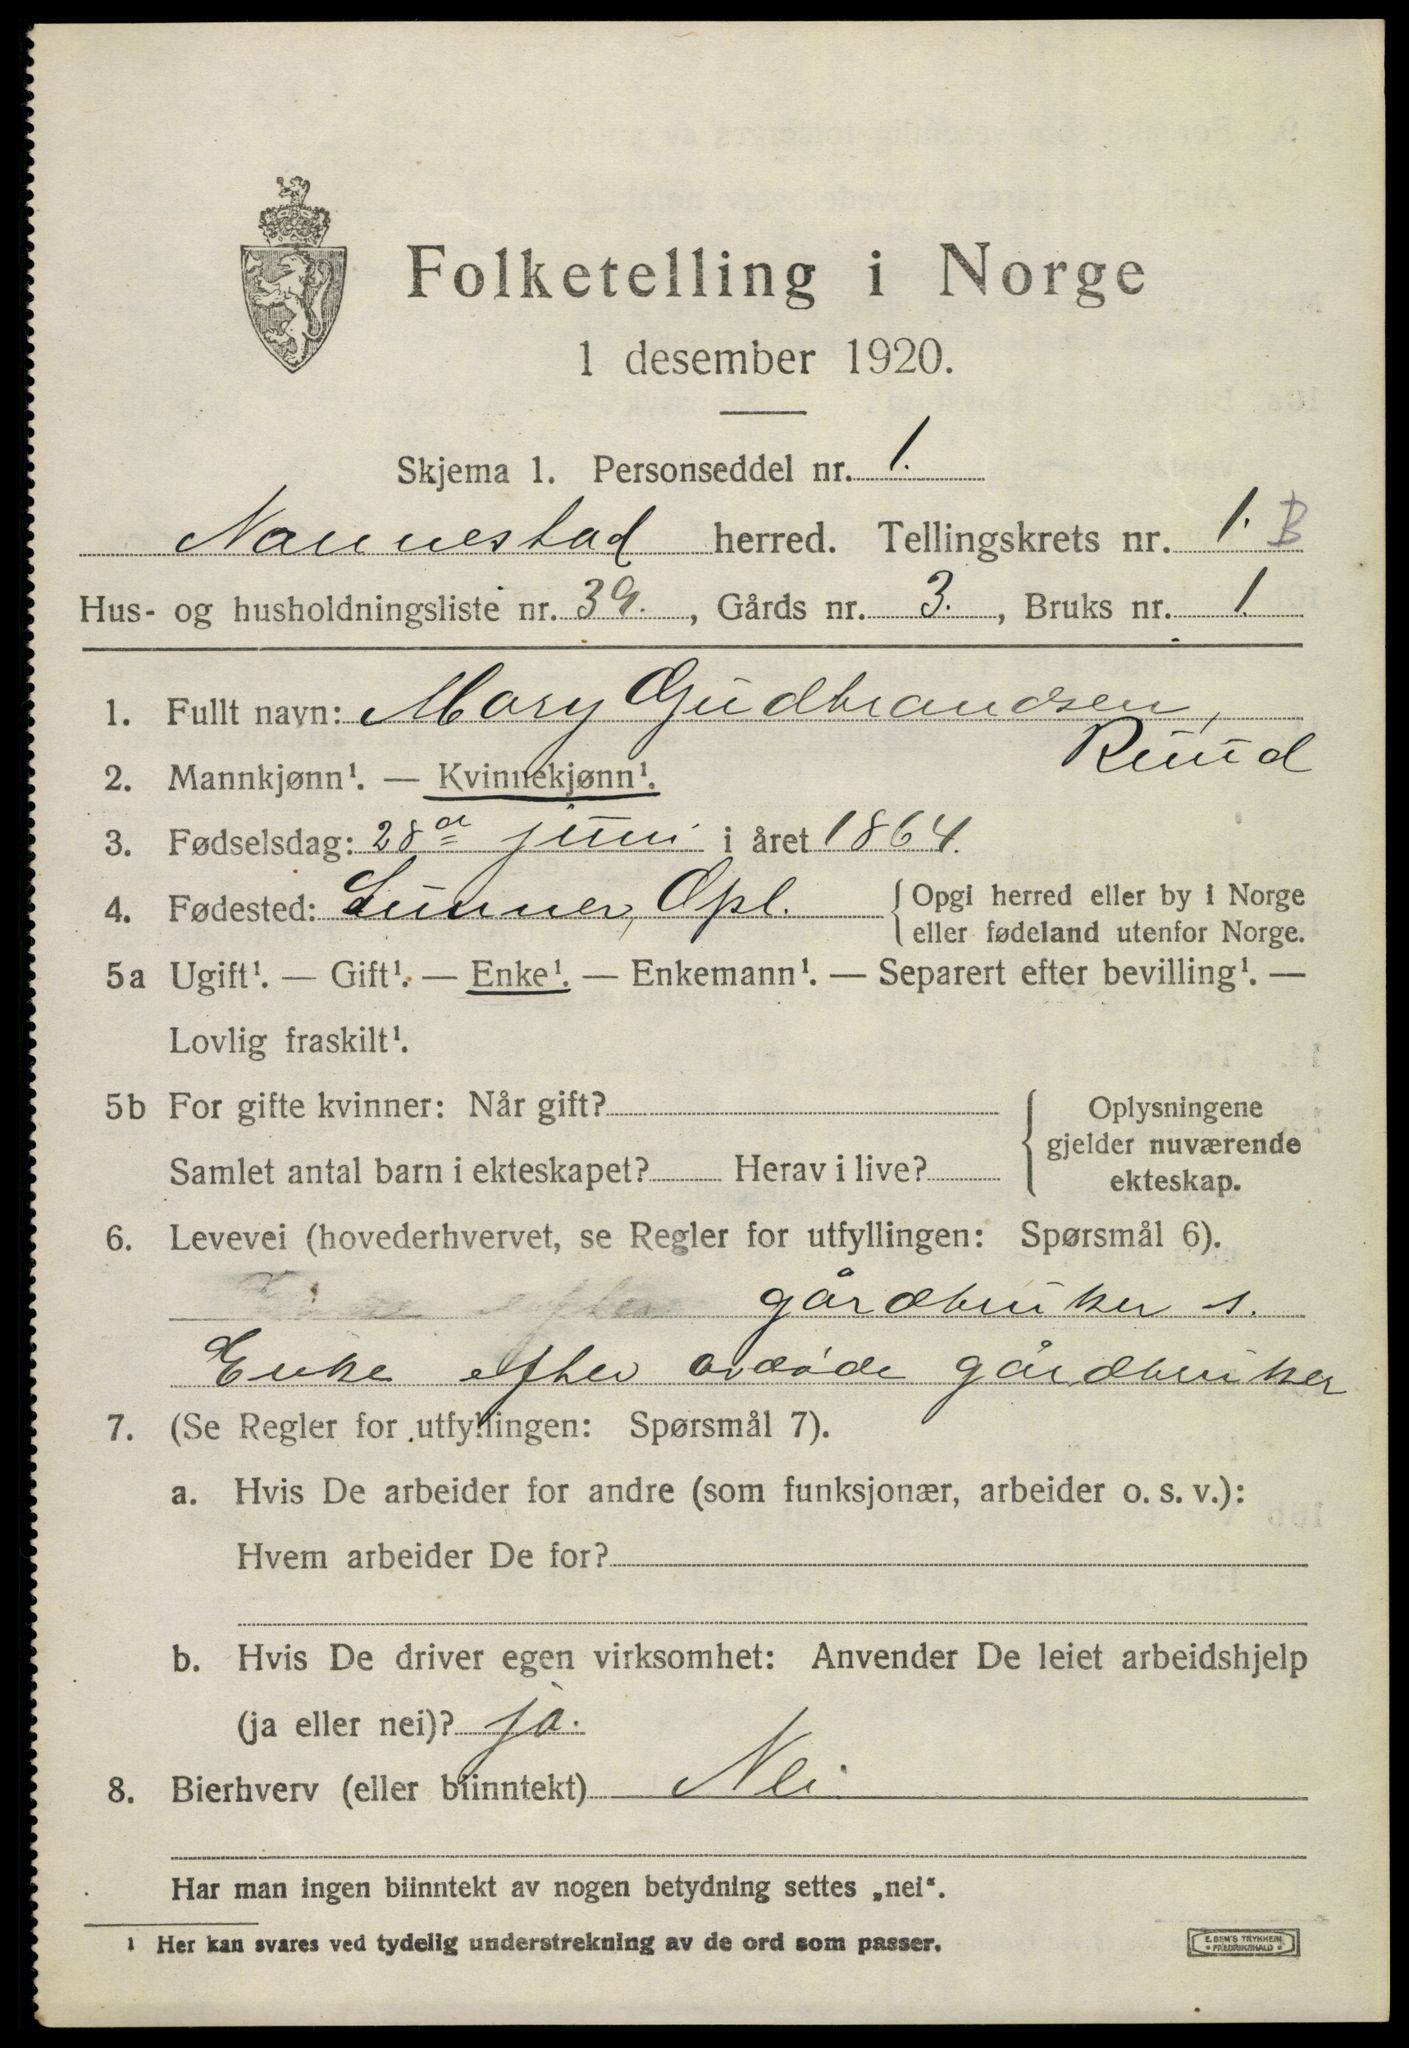 Folketelling i Norge
1 desember 1920.
Skjema 1. Personseddel nr. 1.
Nannestad herred. Tellingskrets nr. 1. B
Hus- og husholdningsliste nr. 39., Gårds nr. 3., Bruks nr. 1.
1. Fullt navn: Mary Gudbrandsen,
Ruud
2. Mannkjønn¹. — Kvinnekjønn¹.
3. Fødselsdag: 28de juni i året 1864.
4. Fødested: Lunner, Opl. { Opgi herred eller by i Norge
eller fødeland utenfor Norge.
5a Ugift¹. — Gift¹. — Enke¹. — Enkemann¹. — Separert efter bevilling¹. —
Lovlig fraskilt¹.
5b For gifte kvinner: Når gift? { Oplysningene
gjelder nuværende
Samlet antal barn i ekteskapet? Herav i live?
ekteskap.
6. Levevei (hovederhvervet, se Regler for utfyllingen: Spørsmål 6).
gårdbruker s.
Enke efter avdøde gårdbruker
7. (Se Regler for utfyllingen: Spørsmål 7).
a. Hvis De arbeider for andre (som funksjonær, arbeider o. s. v.):
Hvem arbeider De for?
b. Hvis De driver egen virksomhet: Anvender De leiet arbeidshjelp
(ja eller nei)? ja.
8. Bierhverv (eller biinntekt) Nei
Har man ingen biinntekt av nogen betydning settes „nei“.
¹ Her kan svares ved tydelig understrekning av de ord som passer.
E. SEM'S TRYKKERI
• FREDRIKSHALD •